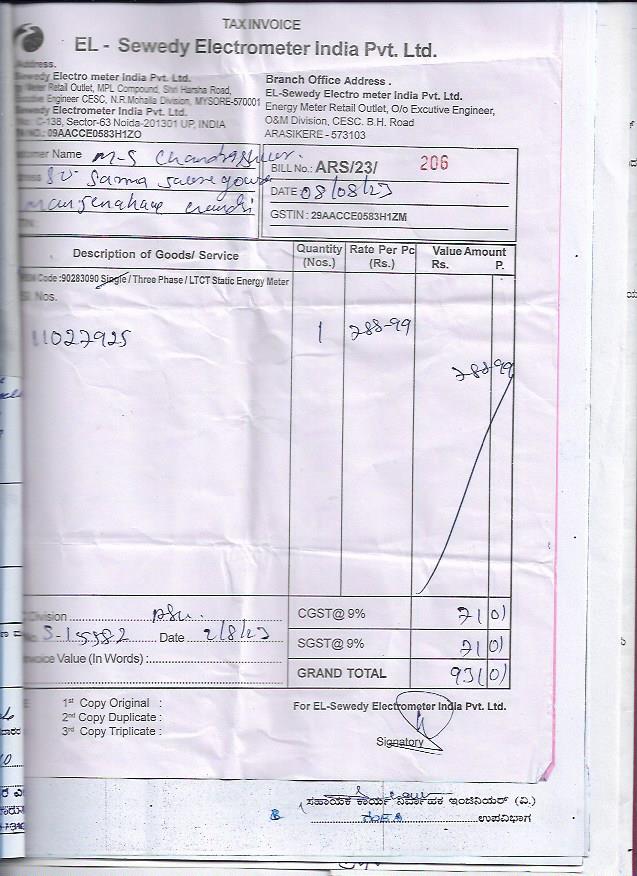 TAX INVOICE
EL - Sewedy Electrometer India Pvt. Ltd.
Address.
Sewedy Electro meter India Pvt. Ltd.
Meter Retail Outlet, MPL Compound, Shri Harsha Road,
Engineer CESC, N.R.Mohalla Division, MYSORE-570001
Sewedy Electrometer India Pvt. Ltd.
C-138, Sector-63 Noida-201301 UP, INDIA
09AACCE0583H1ZO
Branch Office Address .
EL-Sewedy Electro meter India Pvt. Ltd.
Energy Meter Retail Outlet, O/o Excutive Engineer,
O&M Division, CESC. B.H. Road
ARASIKERE - 573103
Customer Name M-S
BILL No.: ARS/23/ 206
DATE 08/08/23
GSTIN : 29AACCE0583H1ZM
Description of Goods/ Service
Quantity (Nos.)
Rate Per Pc (Rs.)
Value Amount
Rs. P.
Code :90283090 Single / Three Phase / LTCT Static Energy Meter
Sl. Nos.
11027925 1 788-99
788-99
Division
CGST@ 9% 71 01
S-15582 Date 2/8/23
SGST@ 9% 71 01
Invoice Value (In Words) :
GRAND TOTAL 931 01
1st Copy Original :
2nd Copy Duplicate :
3rd Copy Triplicate :
For EL-Sewedy Electrometer India Pvt. Ltd.
Signatory
ಸಹಾಯಕ ಕಾರ್ಯ ನಿರ್ವಾಹಕ ಇಂಜಿನಿಯರ್ (ವಿ.)
ಉಪವಿಭಾಗ